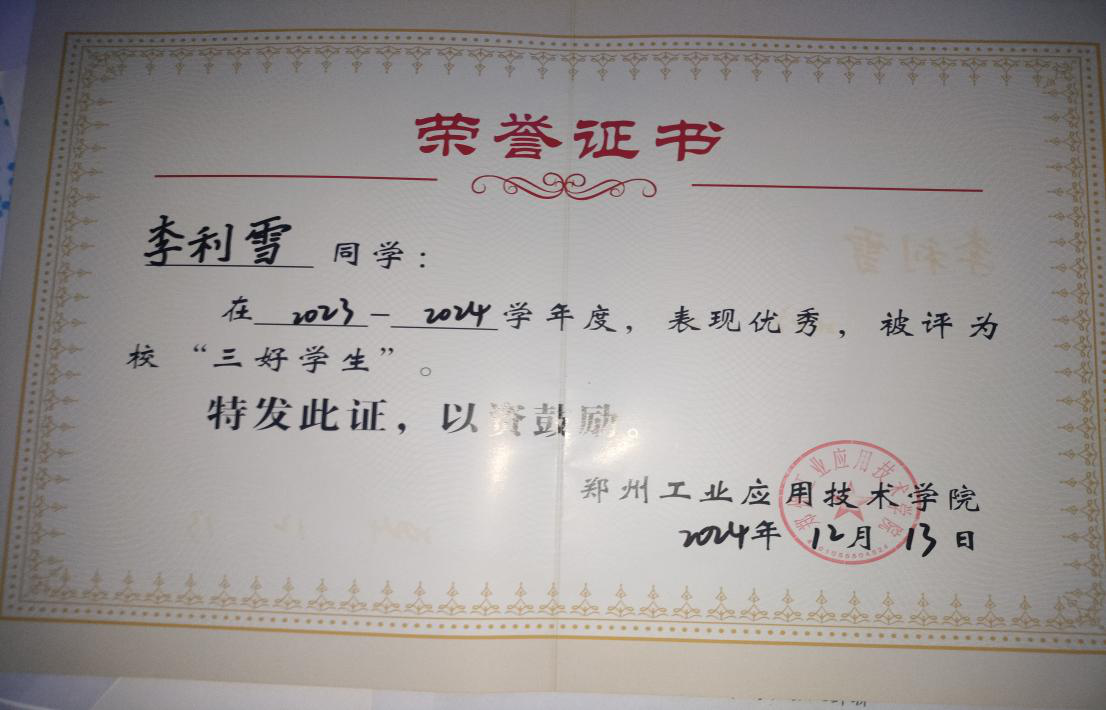 荣誉证书
李利雪 同学：
在2023-2024学年度，表现优秀，被评为
校“三好学生”。
特发此证，以资鼓励。
郑州工业应用技术学院
2024年12月13日
郑州工业应用技术学院